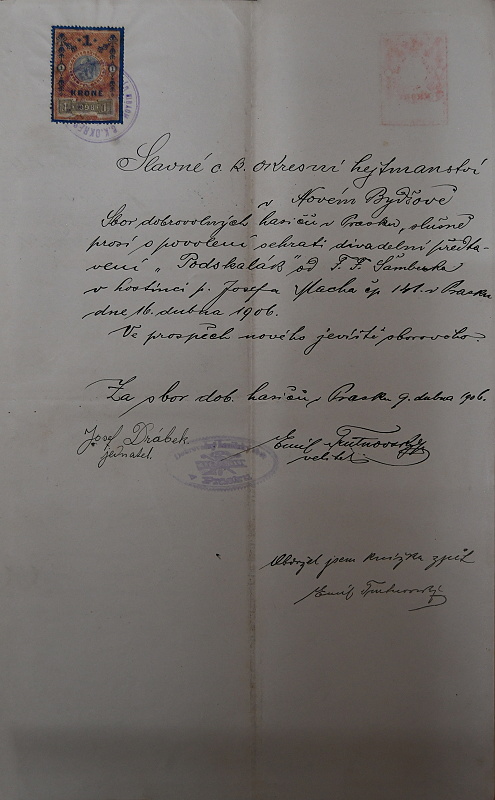 1
KRONE
Slavné c. k. okresní hejtmanství
v Novém Bydžově
Sbor dobrovolných hasičů v Prasku, slušně
prosí o povolení sehrati divadelní předsta-
vení „Podskalák" od F. F. Šamberka
v hostinci p. Josefa Macha čp 141 v Prasku
dne 16. dubna 1906.
Ve prospěch nového jeviště sborového.
Za sbor dob. hasičů v Prasku 9. dubna 1906.
Josef Drábek Emil Trutnovský
jednatel. velitel.
Obdržel jsem knížku zpět
Emil Trutnovský